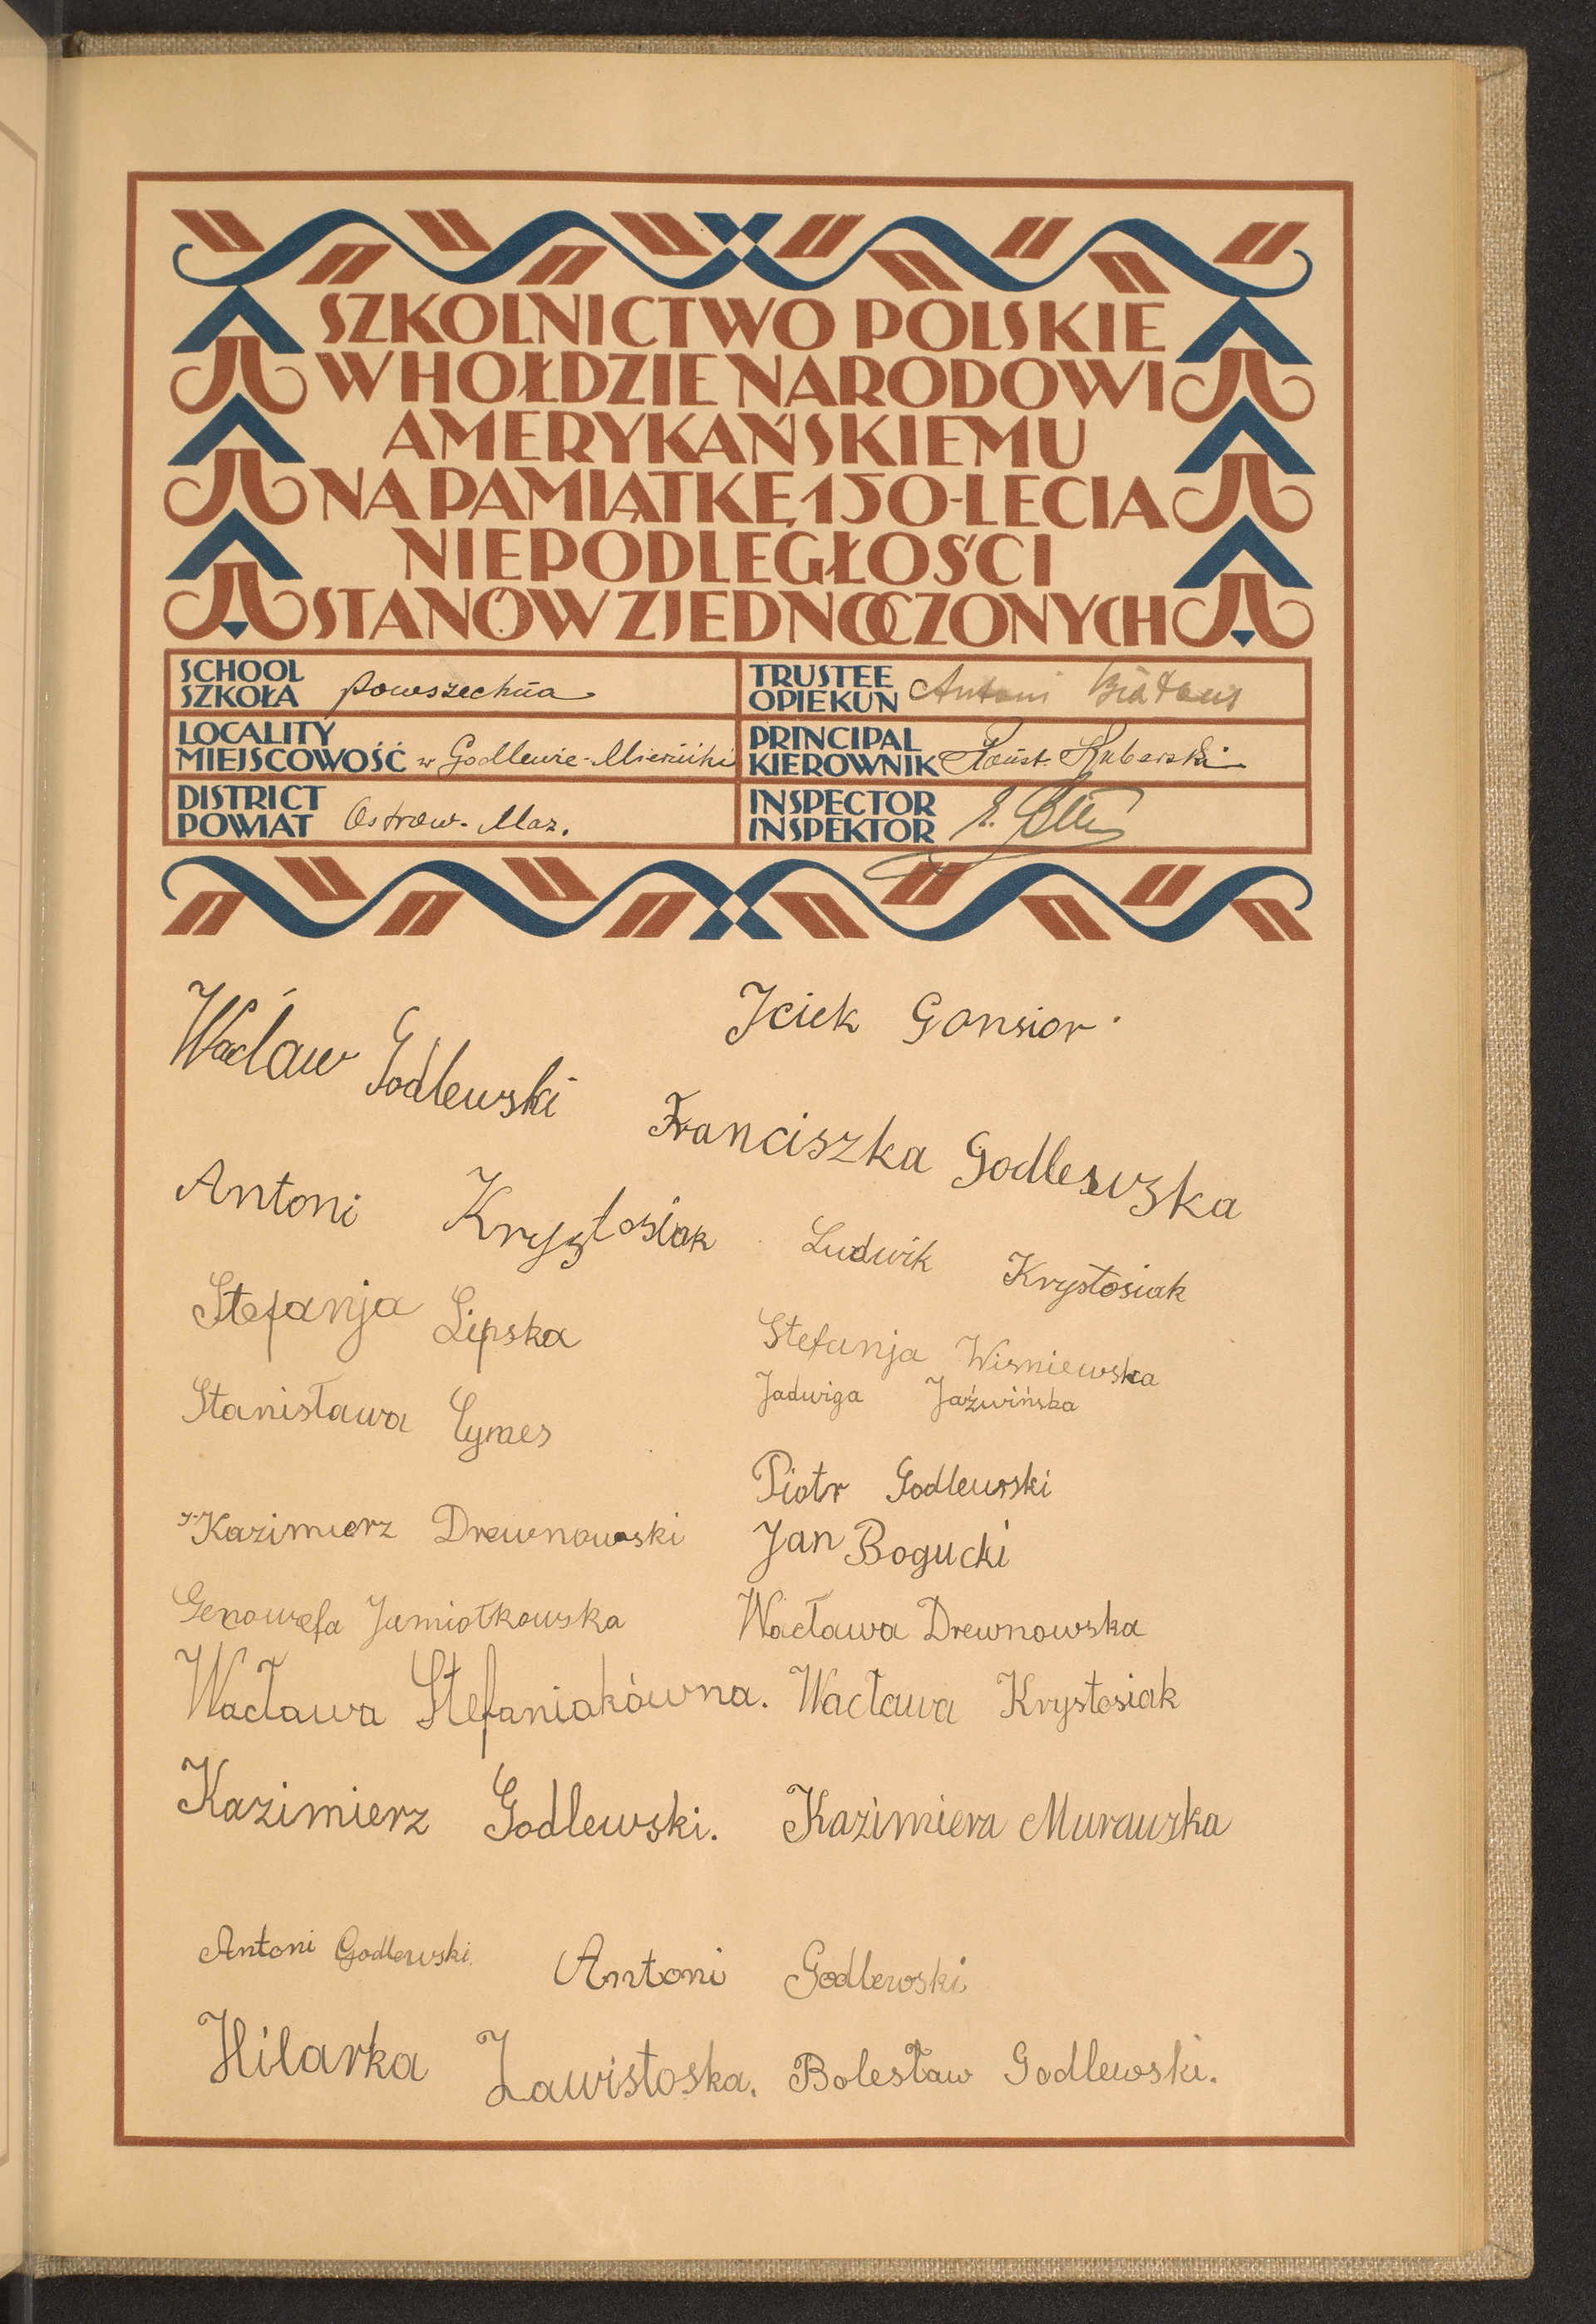 SZKOLNICTWO POLSKIE
W HOŁDZIE NARODOWI
AMERYKAŃSKIEMU
NA PAMIĄTKĘ 150-LECIA
NIEPODLEGŁOŚCI
STANÓW ZJEDNOCZONYCH
SCHOOL
SZKOŁA powszechna
TRUSTEE
OPIEKUN Antoni
LOCALITY
MIEJSCOWOŚĆ w Godlewie-Mierniki
PRINCIPAL
KIEROWNIK Konst. Kuberski
DISTRICT
POWIAT Ostrow. Maz.
INSPECTOR
INSPEKTOR
Wacław Godlewski
Jciek Gonsior
Franciszka Godlewska
Antoni Krystosiak
Ludwik Krystosiak
Stefanja Lipska
Stefanja Wisniewska
Jadwiga Jaźwińska
Stanisława Cymes
Piotr Godlewski
Kazimierz Drewnowski
Jan Bogucki
Genowefa Jamiołkowska
Wacława Drewnowska
Wacława Stefaniakówna.
Wacława Krystosiak
Kazimierz Godlewski.
Kazimiera Murawska
Antoni Godlewski.
Antoni Godlewski
Hilarka Zawistoska.
Bolesław Godlewski.